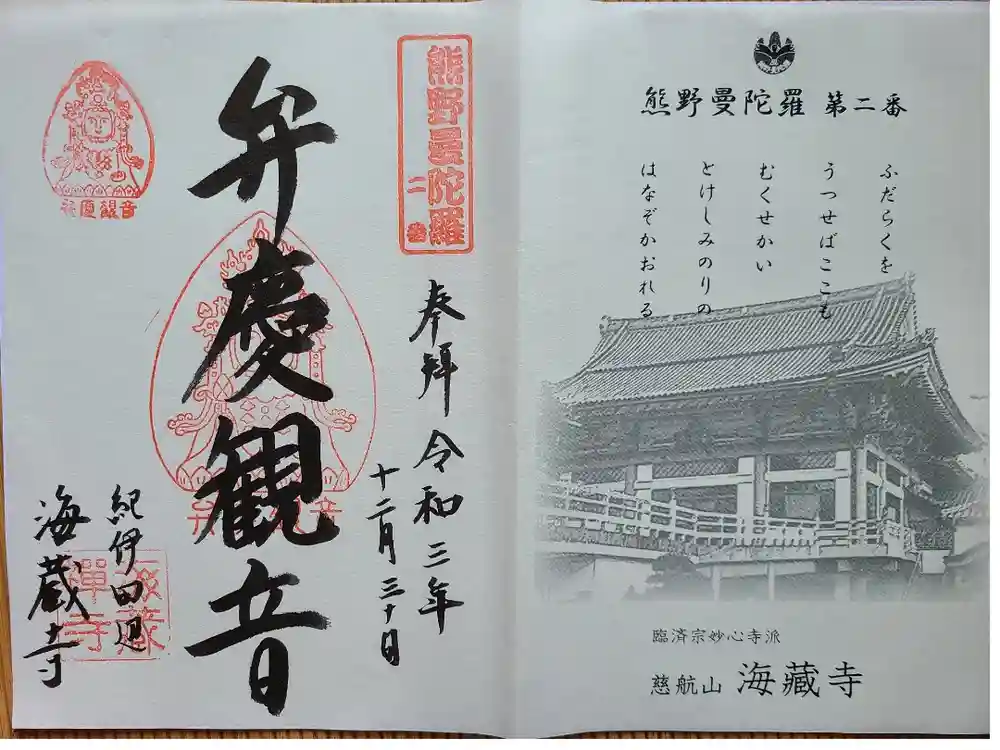 熊野曼陀羅 第二番
ふだらくを
うつせばここも
むくせかい
とけしみのりの
はなぞかおれる
臨済宗妙心寺派
慈航山 海藏寺
熊野曼陀羅
二番
奉拝 令和三年
十二月三十日
弁慶観音
弁慶観音
紀伊田辺
海蔵寺
海藏
禅寺